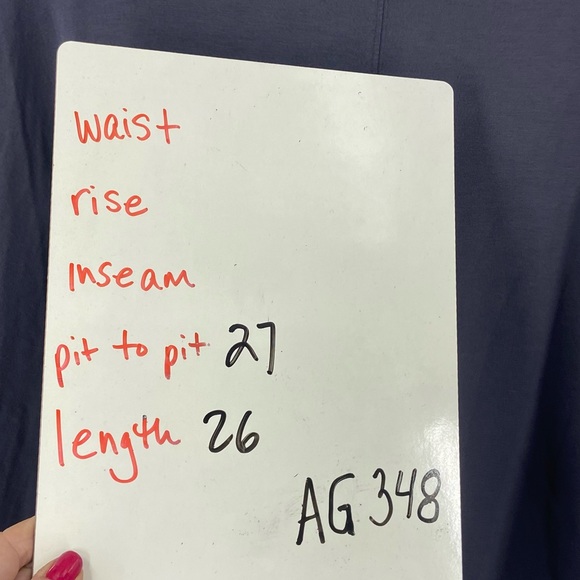 waist
rise
inseam
pit to pit 27
length 26
AG 348